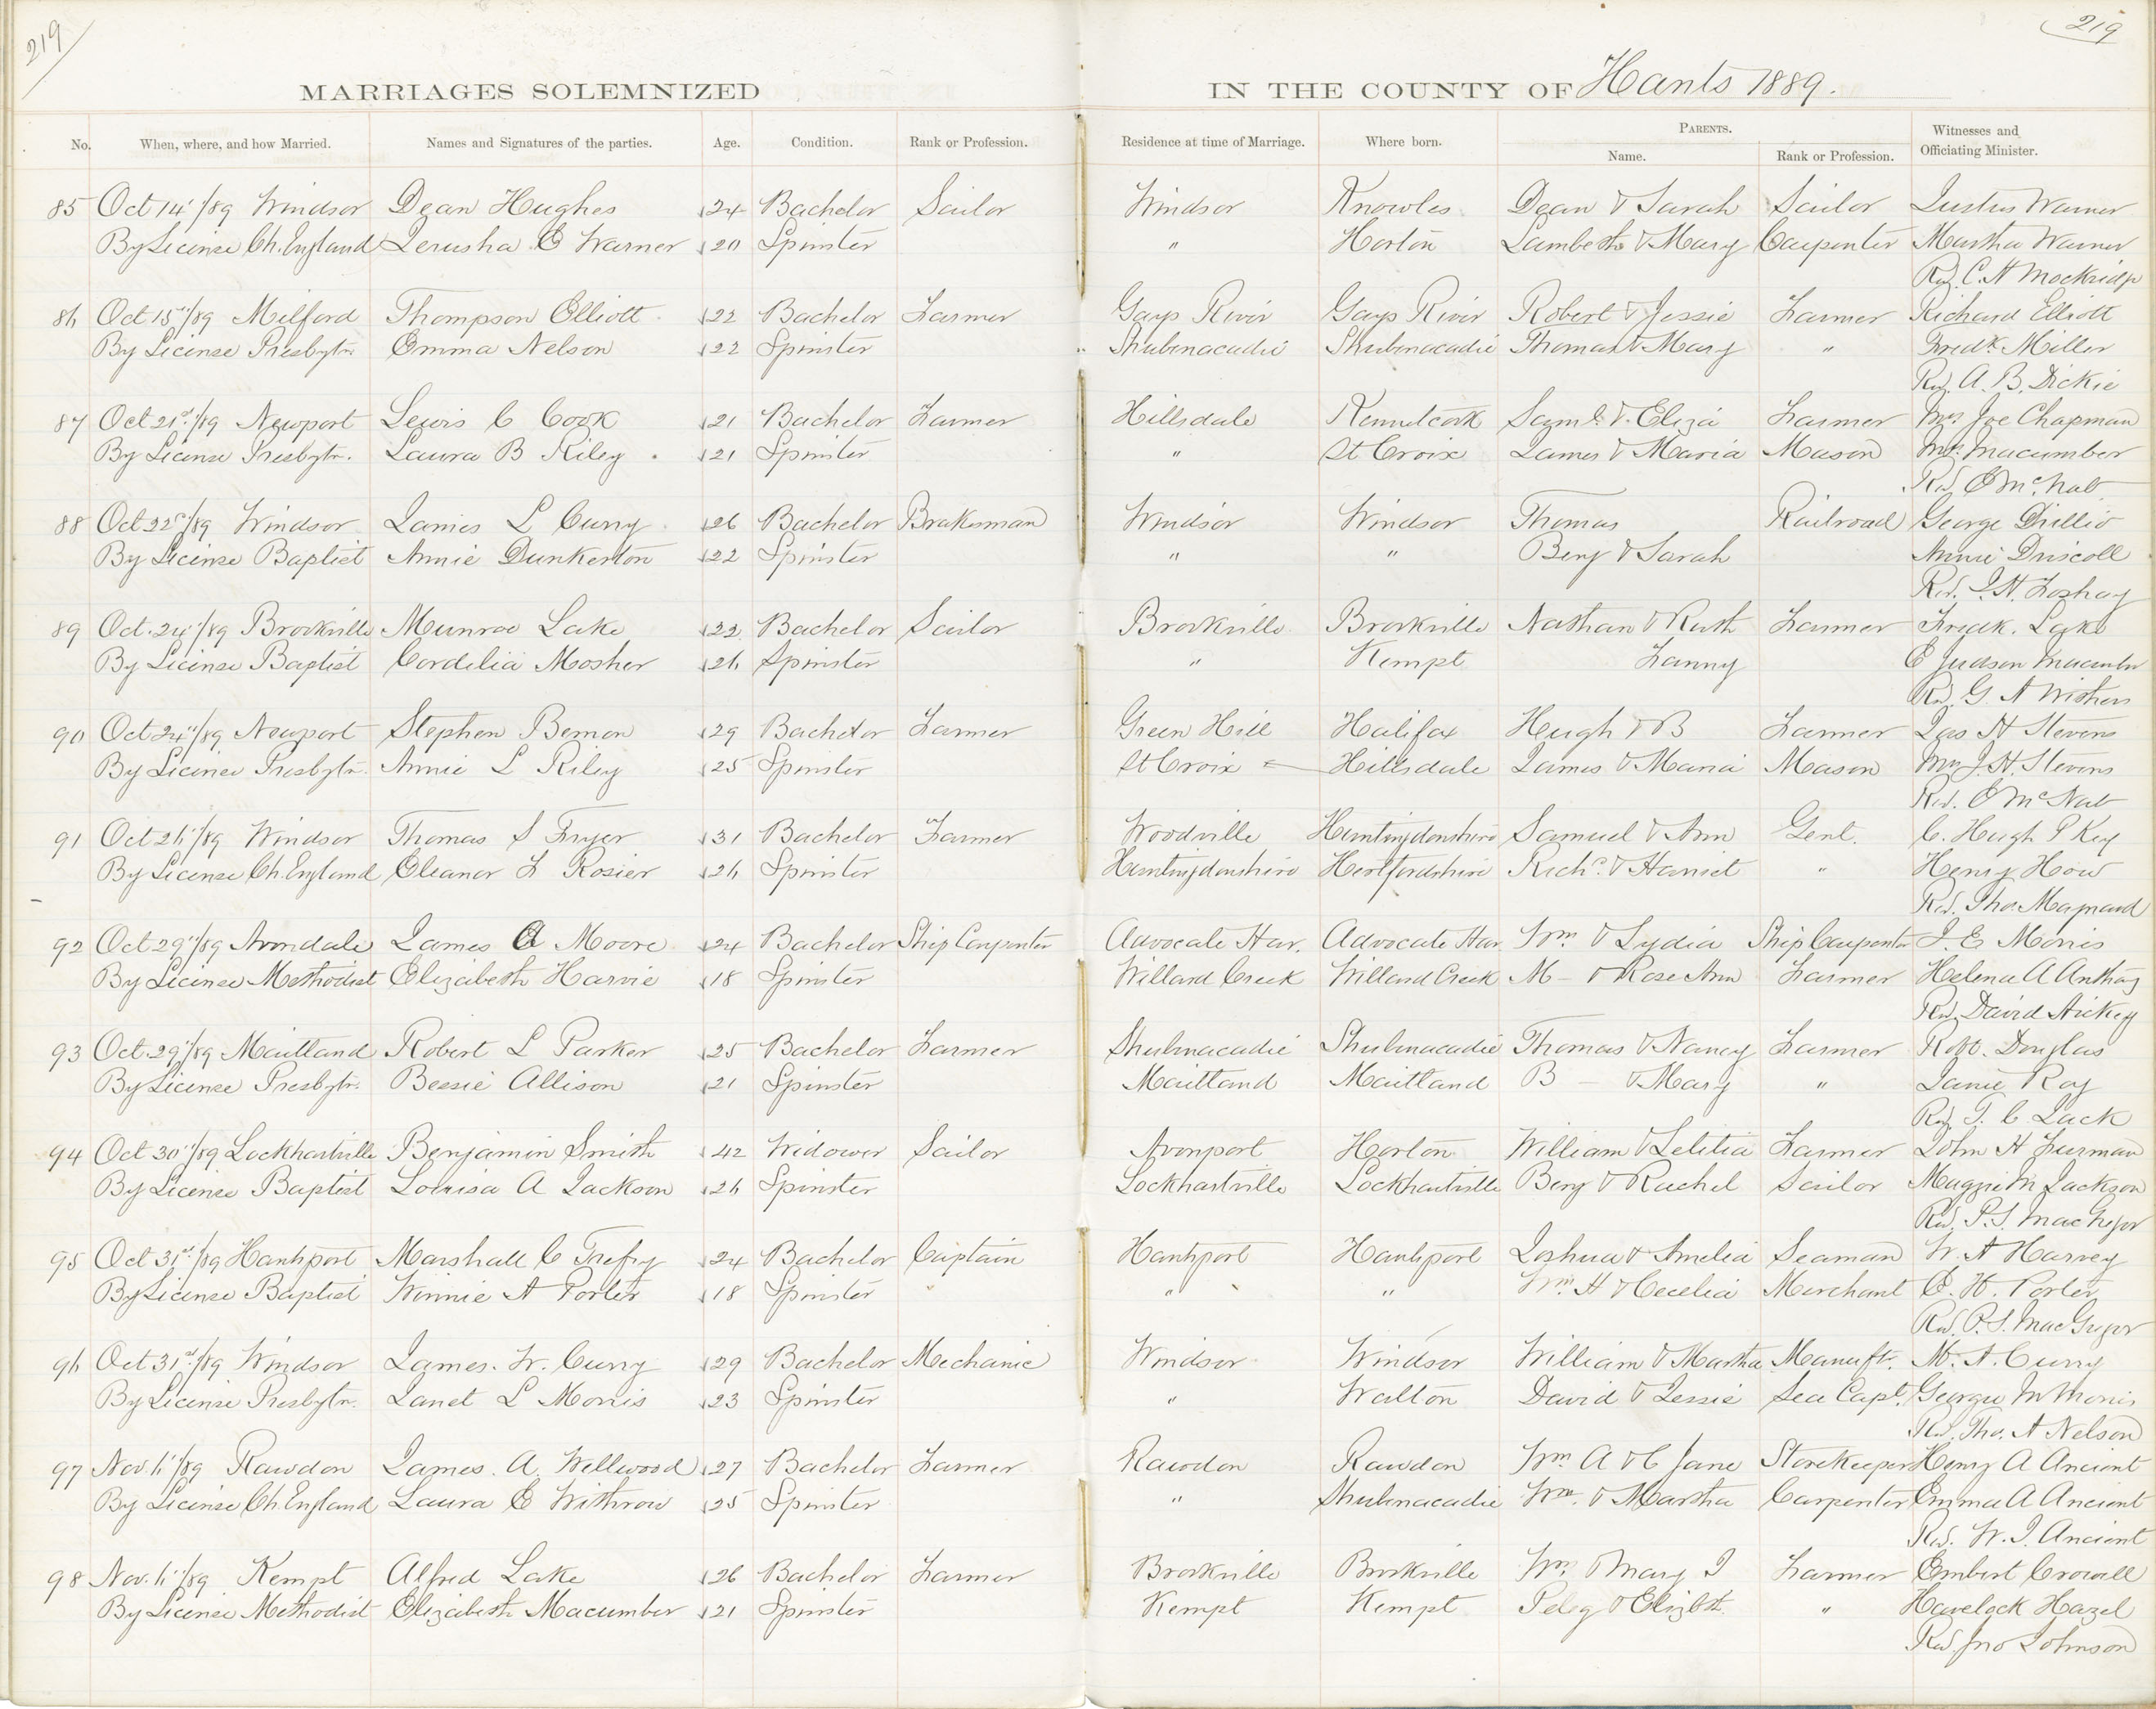 219
219
MARRIAGES SOLEMNIZED IN THE COUNTY OF Hants 1889.
No. When, where, and how Married. Names and Signatures of the parties. Age. Condition. Rank or Profession. Residence at time of Marriage. Where born. PARENTS. Name. Rank or Profession. Witnesses and Officiating Minister.
85 Oct 14"/89 Windsor Dean Hughes 24 Bachelor Sailor Windsor Knowles Dean & Sarah Sailor Justus Warner
By License Ch. England Jerusha E Warner 20 Spinster " Horton Lambeth & Mary Carpenter Martha Warner
Rev. C. H Mockridge
86 Oct 15"/89 Milford Thompson Elliott 22 Bachelor Farmer Gays River Gays River Robert & Jessie Farmer Richard Elliott
By License Presbytn Emma Nelson 22 Spinster Shubenacadie Shubenacadie Thomas & Mary " Fredk. Miller
Rev. A. B. Dickie
87 Oct 21st/89 Newport Lewis C Cook 21 Bachelor Farmer Hillsdale Kennetcook Saml. & Eliza Farmer Mrs Joe Chapman
By License Presbytn. Laura B Riley 21 Spinster " St Croix James & Maria Mason Mrs. Macumber
Rev. E McNab
88 Oct 22d/89 Windsor James L Curry 26 Bachelor Brakesman Windsor Windsor Thomas Railroad George Dillio
By License Baptist Annie Dunkerton 22 Spinster " " Benj & Sarah Annie Driscoll
Rev. J. H. Foshay
89 Oct. 24"/89 Brookville Munroe Lake 22 Bachelor Sailor Brookville Brookville Nathan & Ruth Farmer Fredk. Lake
By License Baptist Cordelia Mosher 26 Spinster " Kempt Fanny E Judson Macumber
Rev. G. A Withers
90 Oct 24"/89 Newport Stephen Bemon 29 Bachelor Farmer Green Hill Halifax Hugh & B Farmer Jas H Stevens
By License Presbytn. Annie L Riley 25 Spinster St Croix Hillsdale James & Maria Mason Mrs J. H. Stevens
Rev. E McNab
91 Oct 26"/89 Windsor Thomas S Fryer 31 Bachelor Farmer Woodville Huntingdonshire Samuel & Ann Gent. C. Hugh P Key
By License Ch. England Eleanor F Rosier 26 Spinster Huntingdonshire Hertfordshire Richd. & Harriet " Henry How
Rev. Tho. Maynard
92 Oct 29"/89 Avondale James A Moore 24 Bachelor Ship Carpenter Advocate Har. Advocate Har Wm. & Lydia Ship Carpenter J. E Morris
By License Methodist Elizabeth Harvie 18 Spinster Willard Creek Willard Creek M - & Rose Ann Farmer Helena A Anthony
Rev. David Hickey
93 Oct. 29"/89 Maitland Robert L Parker 25 Bachelor Farmer Shubenacadie Shubenacadie Thomas & Nancy Farmer Robt. Douglas
By License Presbytn. Bessie Allison 21 Spinster Maitland Maitland B - & Mary " Janie Roy
Rev. T. C. Jack
94 Oct 30"/89 Lockhartville Benjamin Smith 42 Widower Sailor Avonport Horton William & Letitia Farmer John H Fuzman
By License Baptist Louisa A Jackson 26 Spinster Lockhartville Lockhartville Benj & Rachel Sailor Maggie M Jackson
Rev. P. S. MacGregor
95 Oct 31st/89 Hantsport Marshall C Trefry 24 Bachelor Captain Hantsport Hantsport Joshua & Amelia Seaman W. A Harvey
By License Baptist Winnie A Porter 18 Spinster " " Wm. H & Cecelia Merchant E. H. Porter
Rev. P. S. MacGregor
96 Oct 31st/89 Windsor James. W. Curry 29 Bachelor Mechanic Windsor Windsor William & Martha Manuftr. M. A. Curry
By License Presbytn. Janet L Morris 23 Spinster " Walton David & Jessie Sea Capt. Georgie M Morris
Rev. Tho. A Nelson
97 Nov. 6"/89 Rawdon James. A. Wellwood 27 Bachelor Farmer Rawdon Rawdon Wm A & C Jane Storekeeper Henry A Ancient
By License Ch. England Laura E Withrow 25 Spinster " Shubenacadie Wm. & Martha Carpenter Emma A Ancient
Rev. W. J. Ancient
98 Nov. 6"/89 Kempt Alfred Lake 26 Bachelor Farmer Brookville Brookville Wm. & Mary J Farmer Embert Crowell
By License Methodist Elizabeth Macumber 21 Spinster Kempt Kempt Peleg & Elizbth. " Havelock Hazel
Rev. Jno Johnson